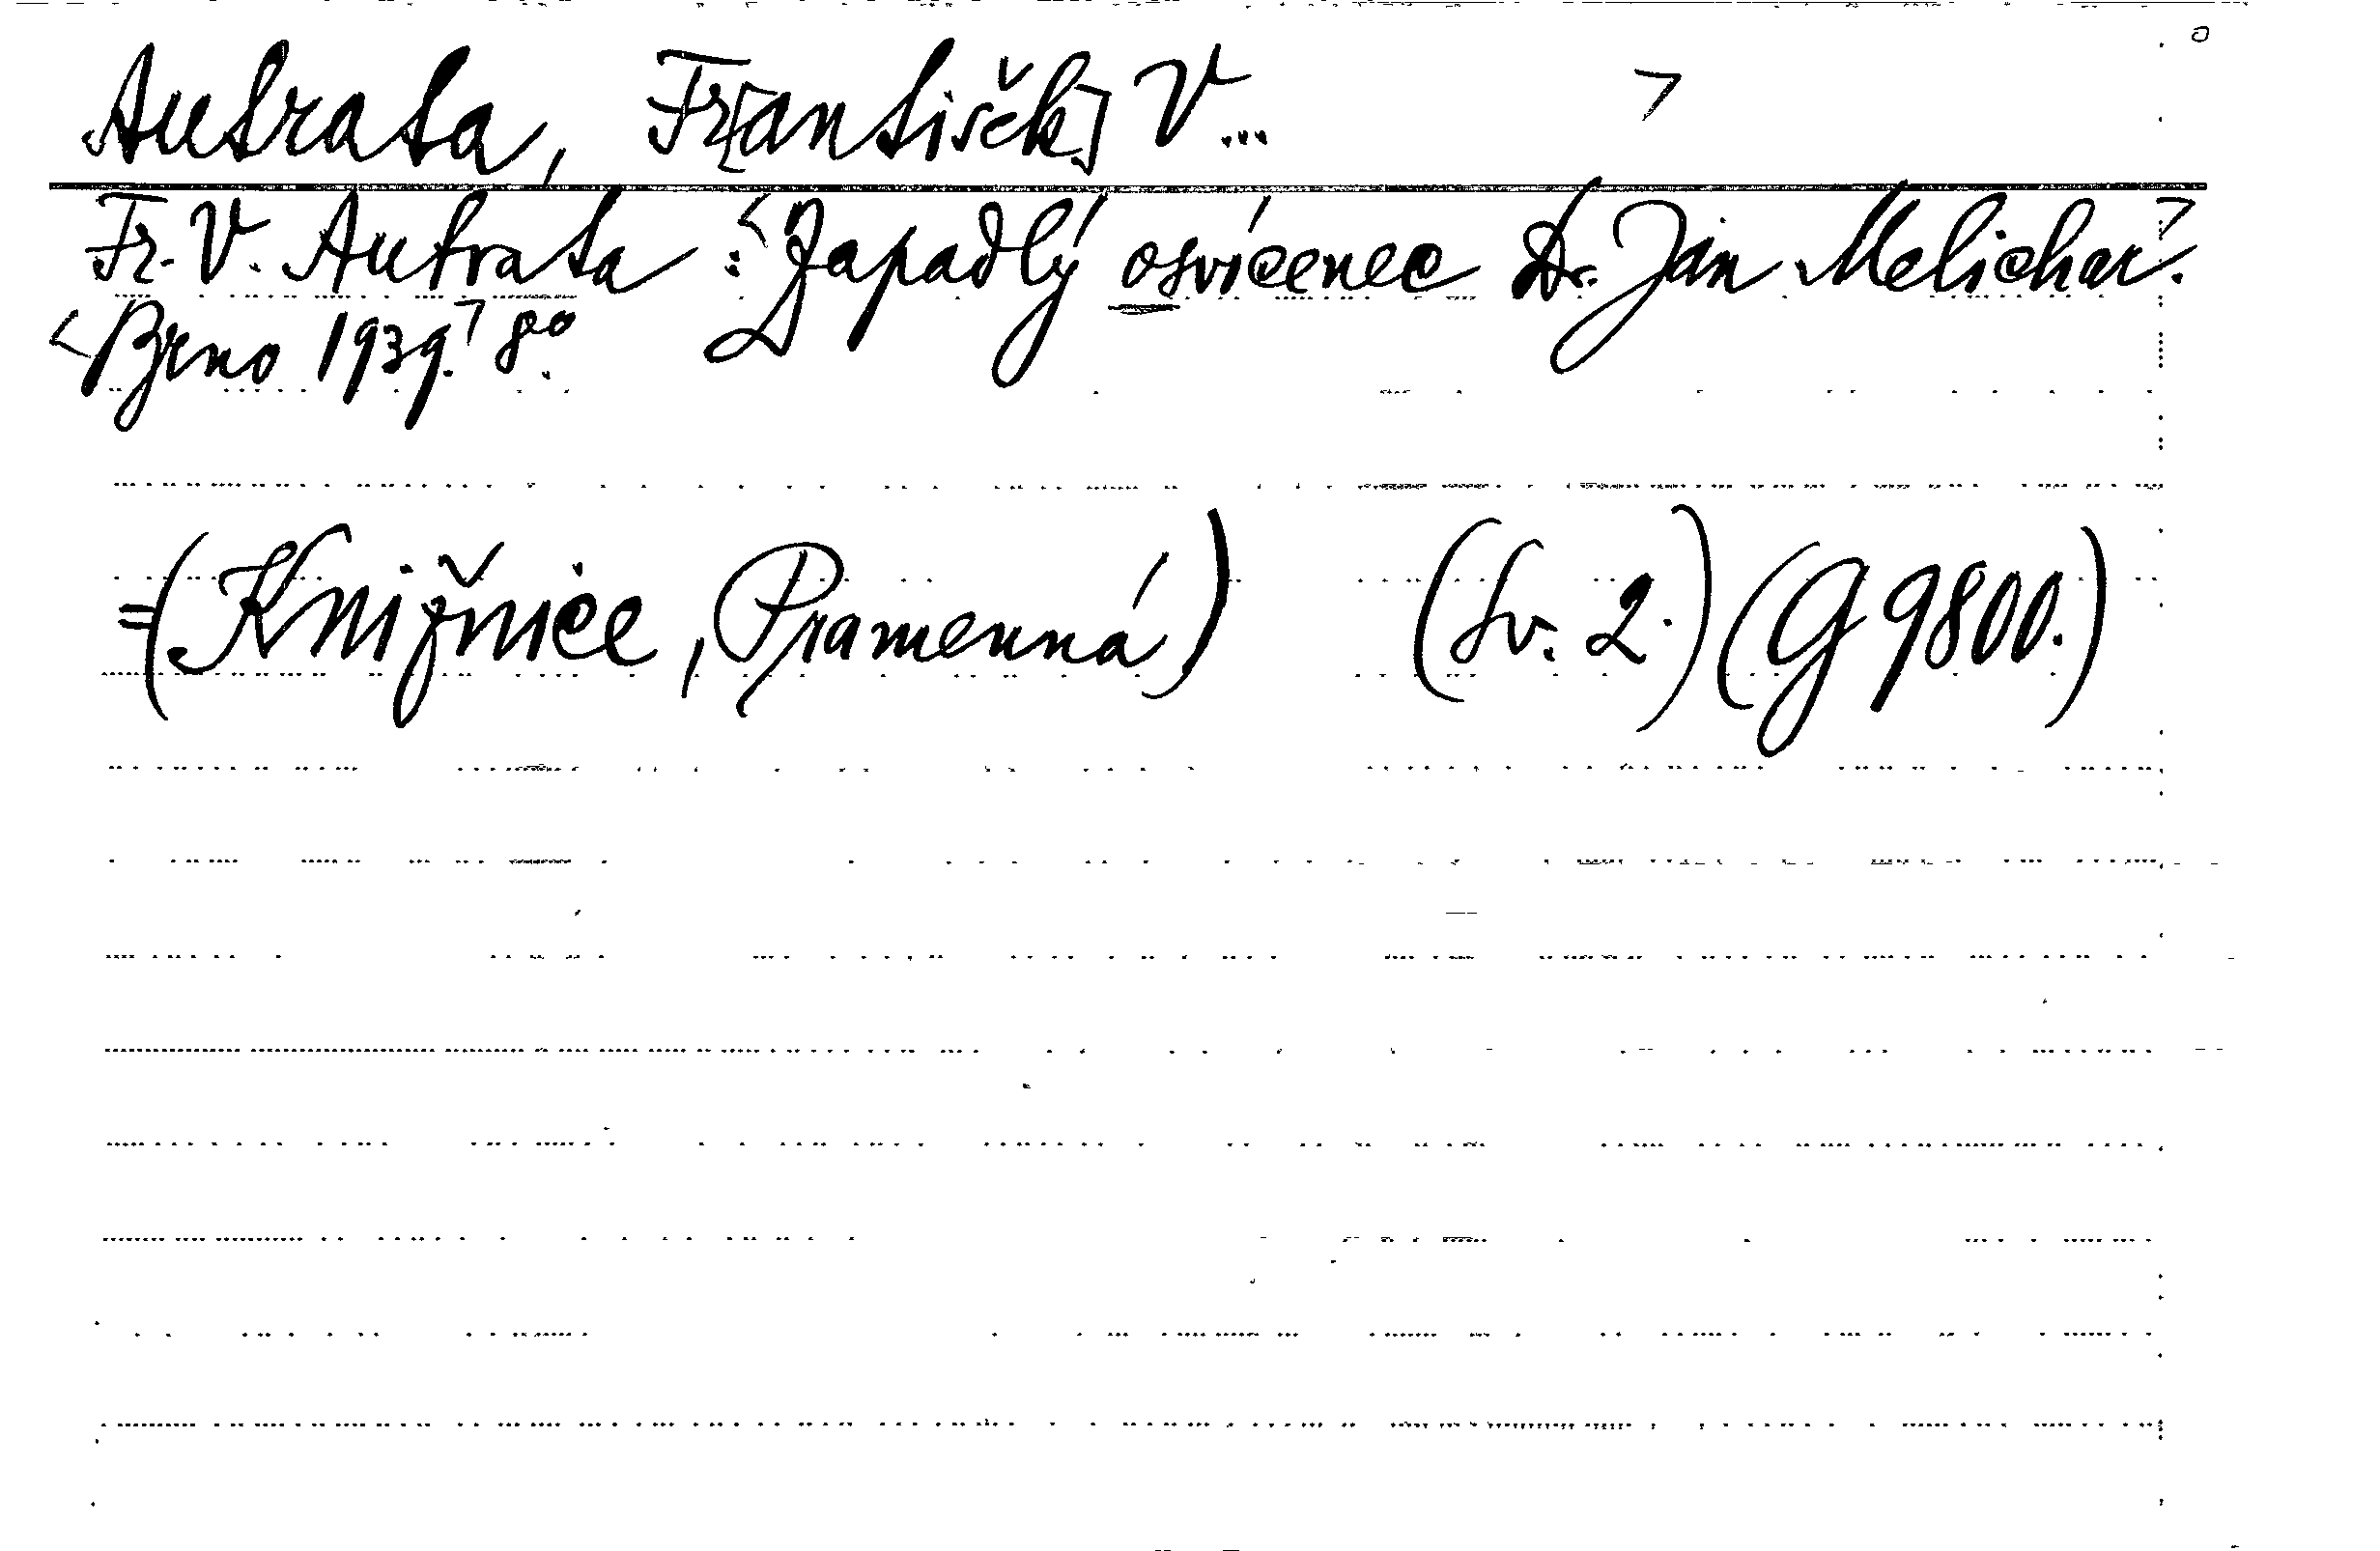 Autrata, Fr[antišek] V...
Fr. V. Autrata: Zapadlý osvícenec Dr. Jan Melichar.
Brno 1939. 8°.
=(Knižnice, Pramenná) (Sv. 2.) (G 9800.)